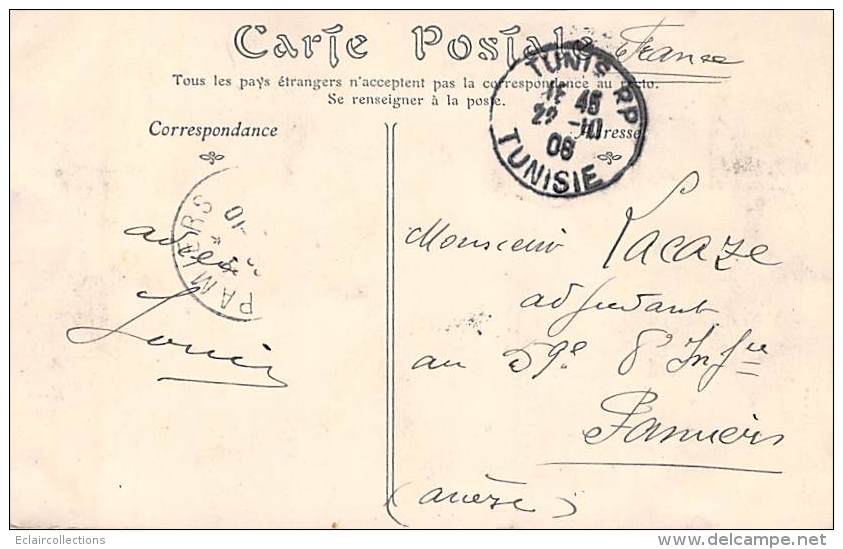 Carte Postale
France
Tous les pays étrangers n'acceptent pas la correspondance au recto.
Se renseigner à la poste.
Correspondance
Adresse
TUNIS RP
45
22 -10
08
TUNISIE
PAMIERS
10
Louis
Monsieur Lacaze
adjudant
au 59e d'Infie
Pamiers
(Ariège)
Eclaircollections
www.delcampe.net